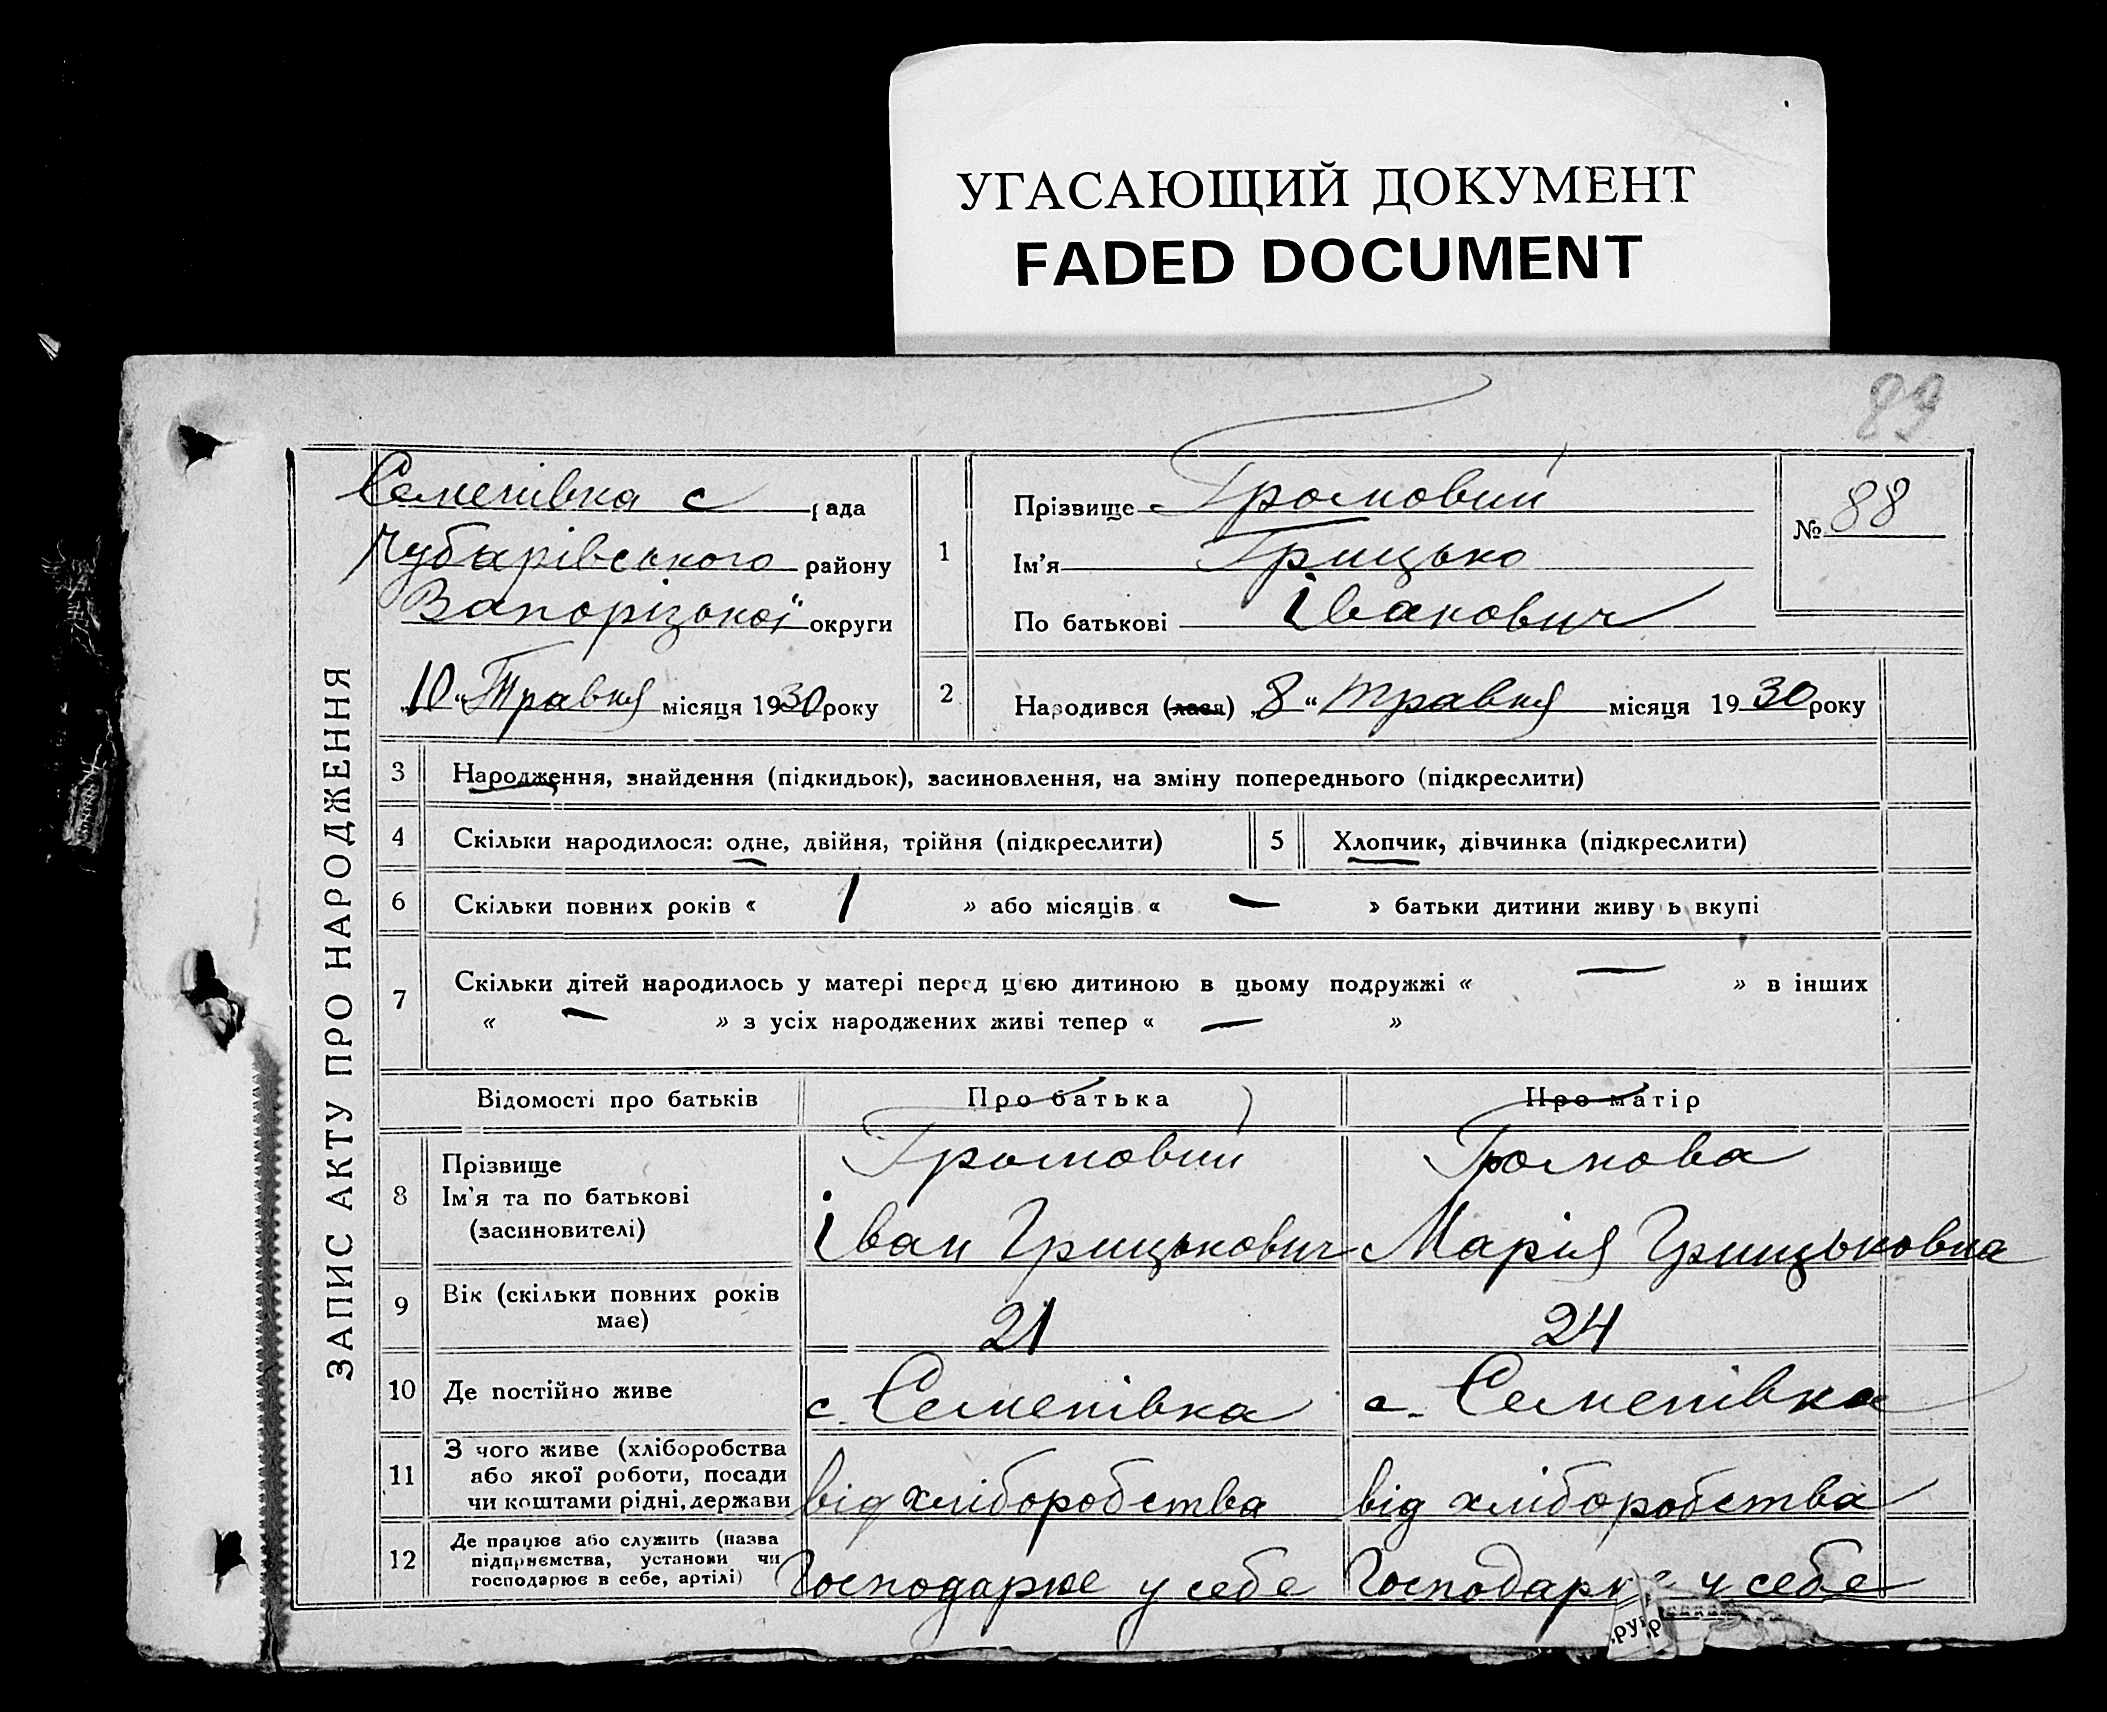 УГАСАЮЩИЙ ДОКУМЕНТ
FADED DOCUMENT
89
ЗАПИС АКТУ ПРО НАРОДЖЕННЯ
Семенівка с рада
Чубарівського району
Запорізької округи
„10“ Травня місяця 1930 року
1
Прізвище Громовий
Ім'я Грицько
По батькові Іванович
№ 88
2 Народився (лася) „8“ травня місяця 1930 року
3 Народження, знайдення (підкидьок), засиновлення, на зміну попереднього (підкреслити)
4 Скільки народилося: одне, двійня, трійня (підкреслити) 5 Хлопчик, дівчинка (підкреслити)
6 Скільки повних років « 1 » або місяців « — » батьки дитини живуть вкупі
7 Скільки дітей народилось у матері перед цією дитиною в цьому подружжі « — » в інших
« — » з усіх народжених живі тепер « — »
Відомості про батьків Про батька Про матір
8 Прізвище Громовий Громова
Ім'я та по батькові Іван Грицькович Марія Грицьковна
(засиновителі)
9 Вік (скільки повних років має) 21 24
10 Де постійно живе с. Семенівка с. Семенівка
11 З чого живе (хліборобства
або якої роботи, посади
чи коштами рідні, держави від хліборобства від хліборобства
12 Де працює або служить (назва
підприємства, установи чи
господарює в себе, артілі) Господарює у себе Господарює у себе